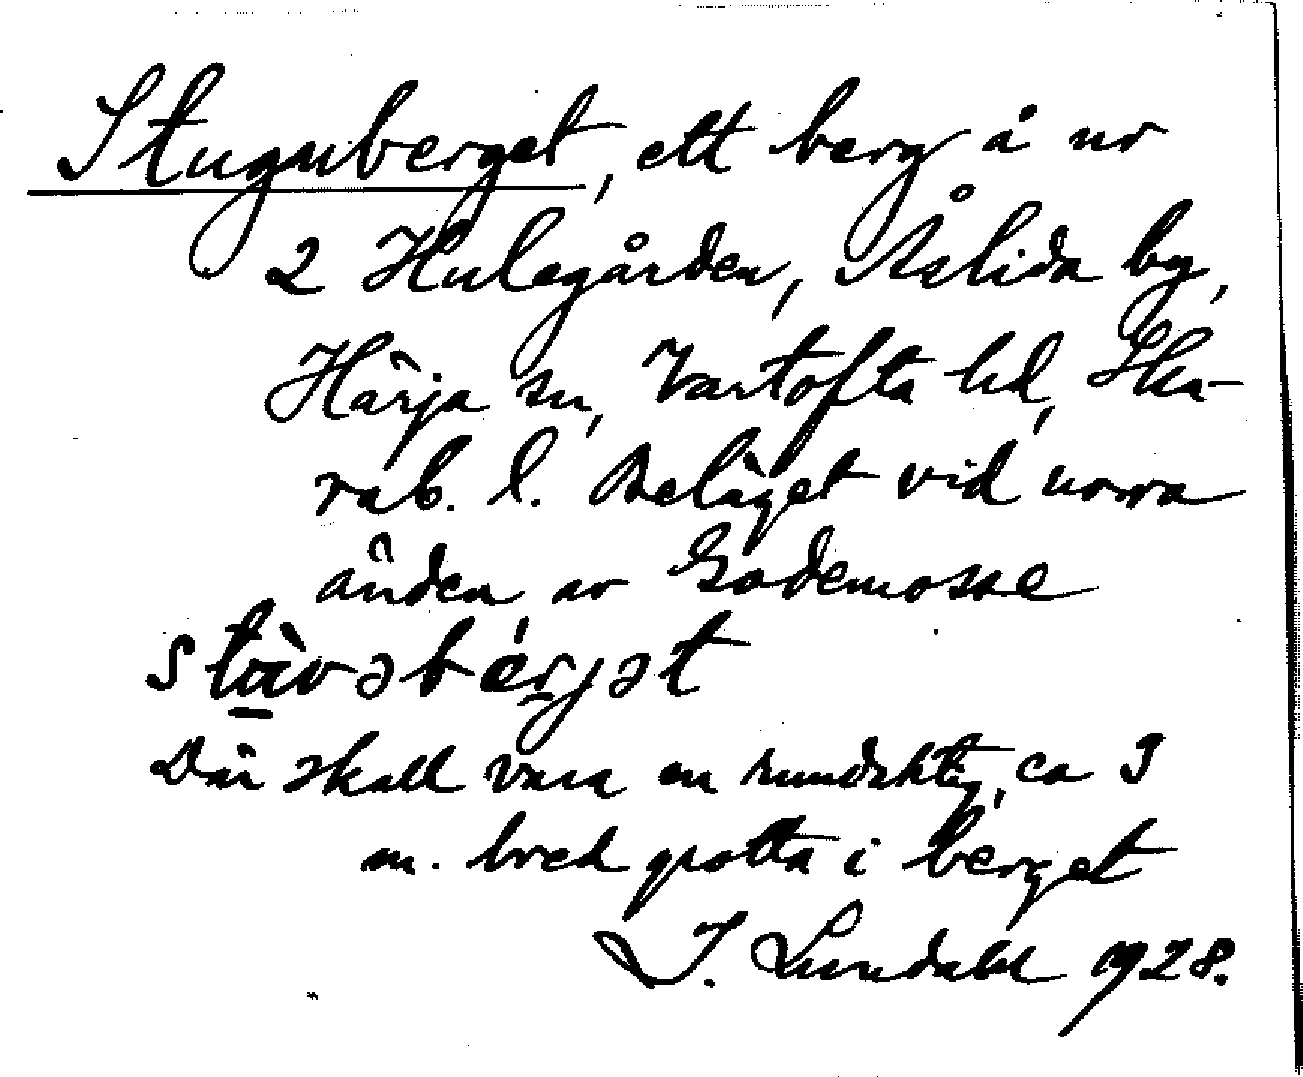 Stuguberget, ett berg å nr
2 Hulegården, Åslida by,
Härja sn, Vartofta hd, Ska-
rab. l. Beläget vid norra
änden av Godemosse
Där skall vara en rundaktig, ca 3
m. bred grotta i berget
I. Lundahl 1928.